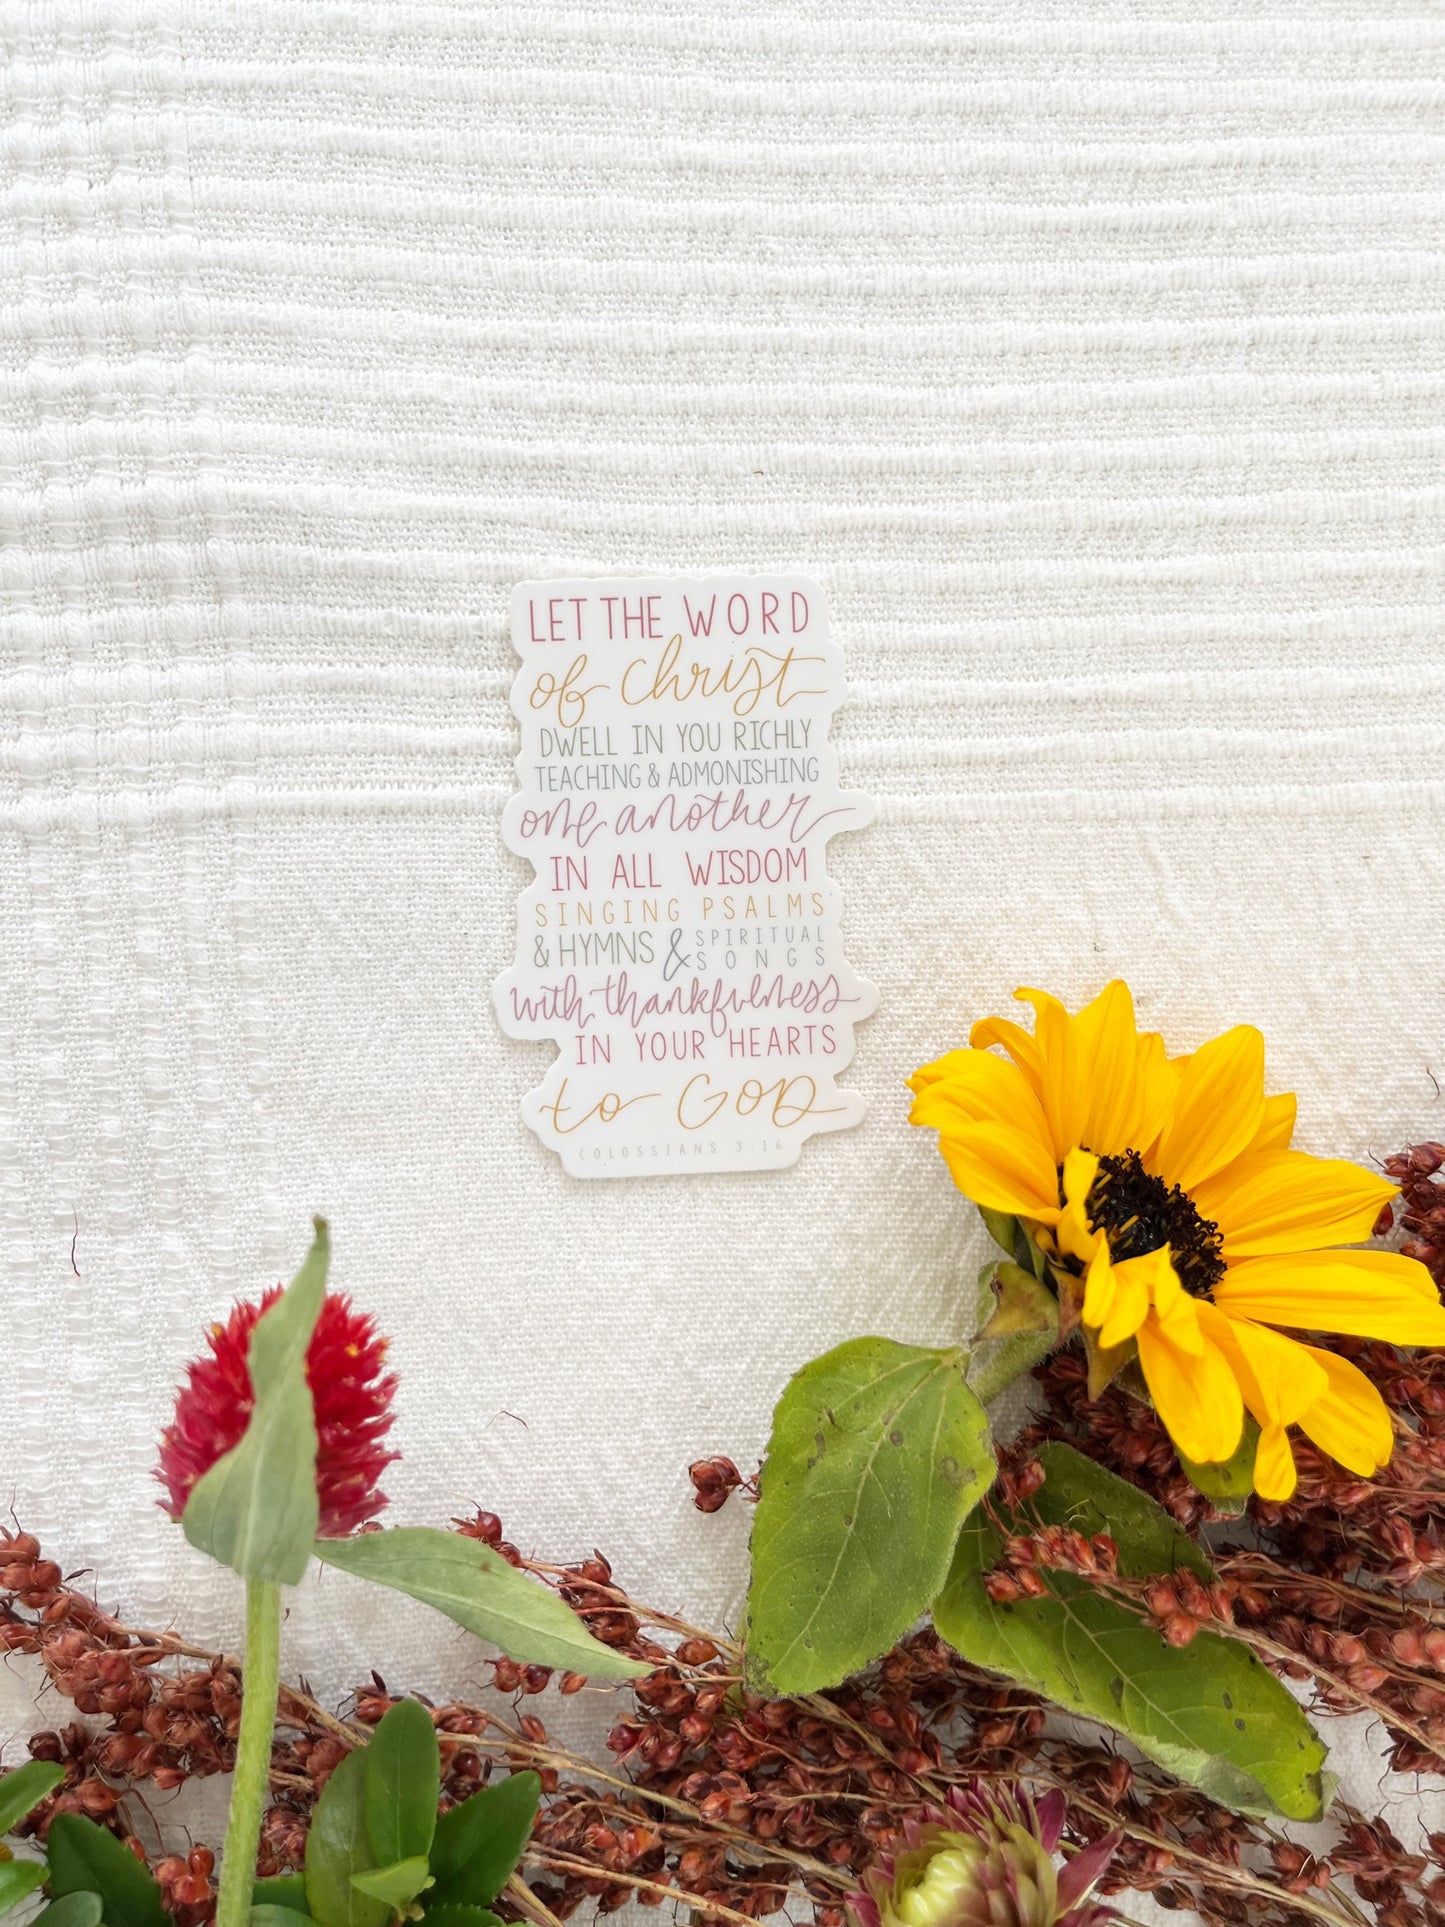 LET THE WORD
of Christ
DWELL IN YOU RICHLY
TEACHING & ADMONISHING
one another
IN ALL WISDOM
SINGING PSALMS
& HYMNS & SPIRITUAL
SONGS
with thankfulness
IN YOUR HEARTS
to GOD
COLOSSIANS 3:16